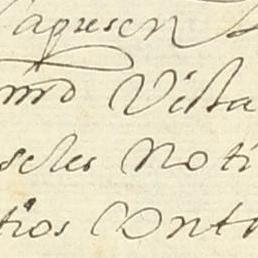 aquesen
Vista
seles Noti
tios Contr